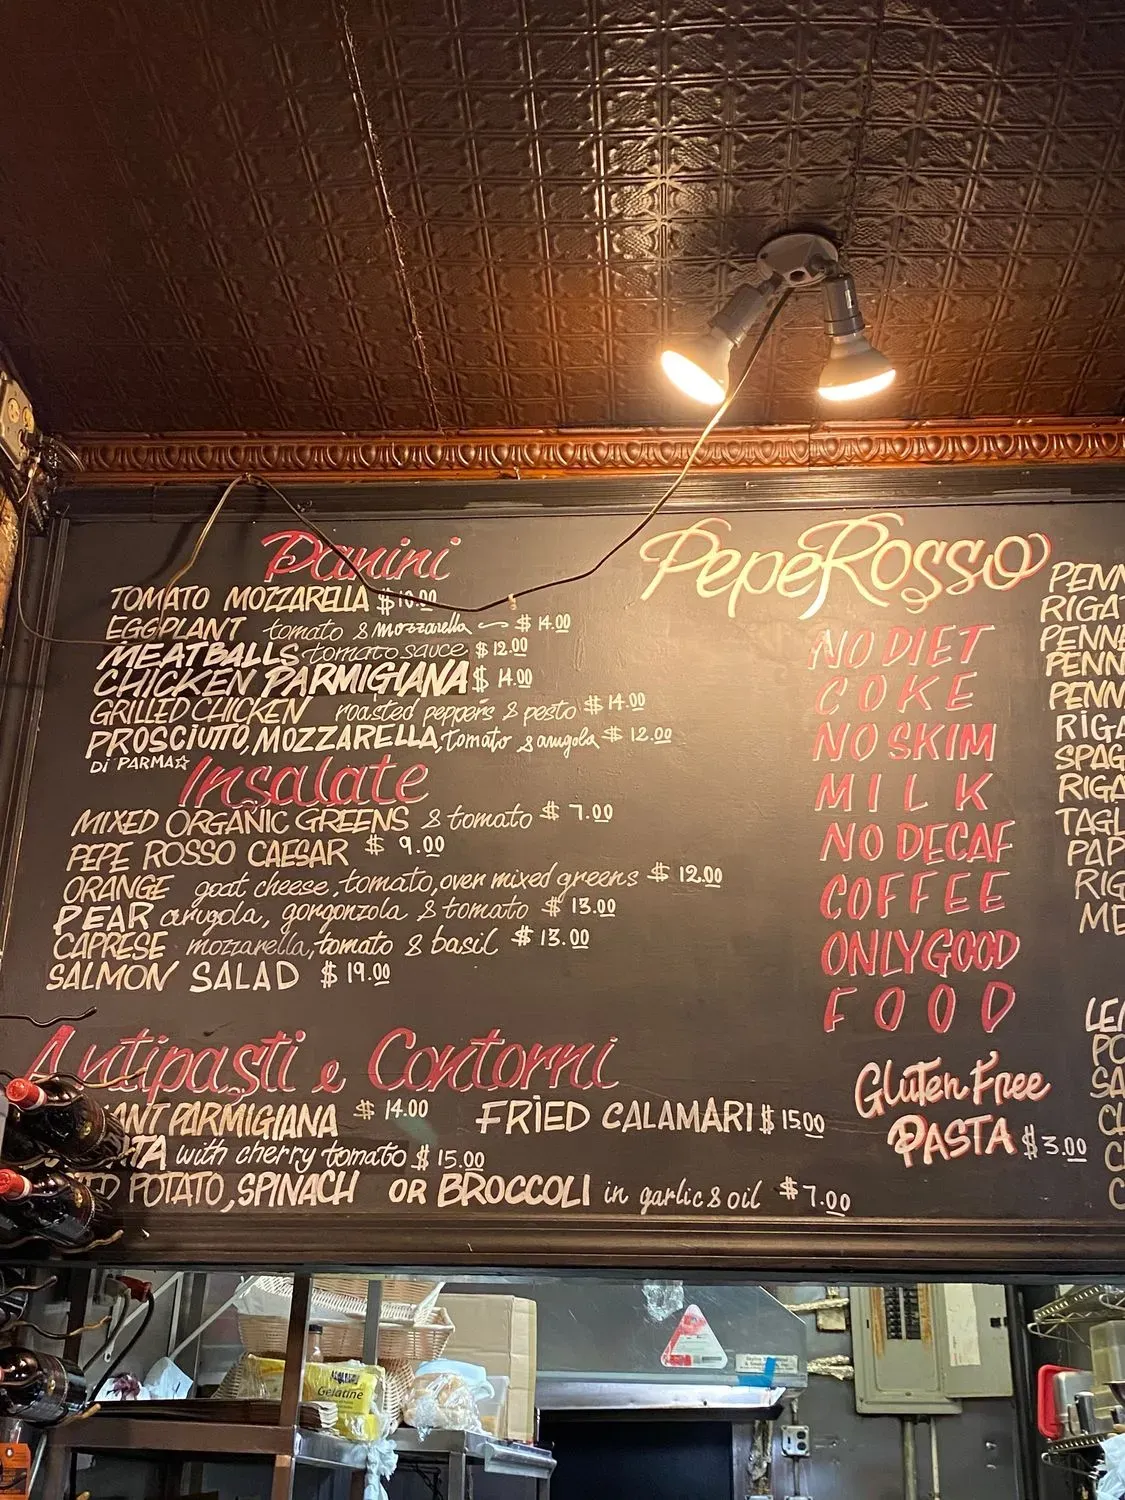 Panini
TOMATO MOZZARELLA $10.00
EGGPLANT tomato & mozzarella $14.00
MEATBALLS tomato sauce $12.00
CHICKEN PARMIGIANA $14.00
GRILLED CHICKEN roasted peppers & pesto $14.00
PROSCIUTTO, MOZZARELLA, tomato & arugola $12.00
Di PARMA
Insalate
MIXED ORGANIC GREENS & tomato $7.00
PEPE ROSSO CAESAR $9.00
ORANGE goat cheese, tomato, over mixed greens $12.00
PEAR arugola, gorgonzola & tomato $13.00
CAPRESE mozzarella, tomato & basil $13.00
SALMON SALAD $19.00
Antipasti e Contorni
ANT PARMIGIANA $14.00 FRIED CALAMARI $15.00
TA with cherry tomato $15.00
ED POTATO, SPINACH OR BROCCOLI in garlic & oil $7.00
PepeRosso
NO DIET
COKE
NO SKIM
MILK
NO DECAF
COFFEE
ONLY GOOD
FOOD
Gluten Free
PASTA $3.00
PENN
RIGAT
PENNE
PENN
PENN
RIGA
SPAG
RIGA
TAGL
PAP
RIG
ME
LE
PO
SA
Gelatine